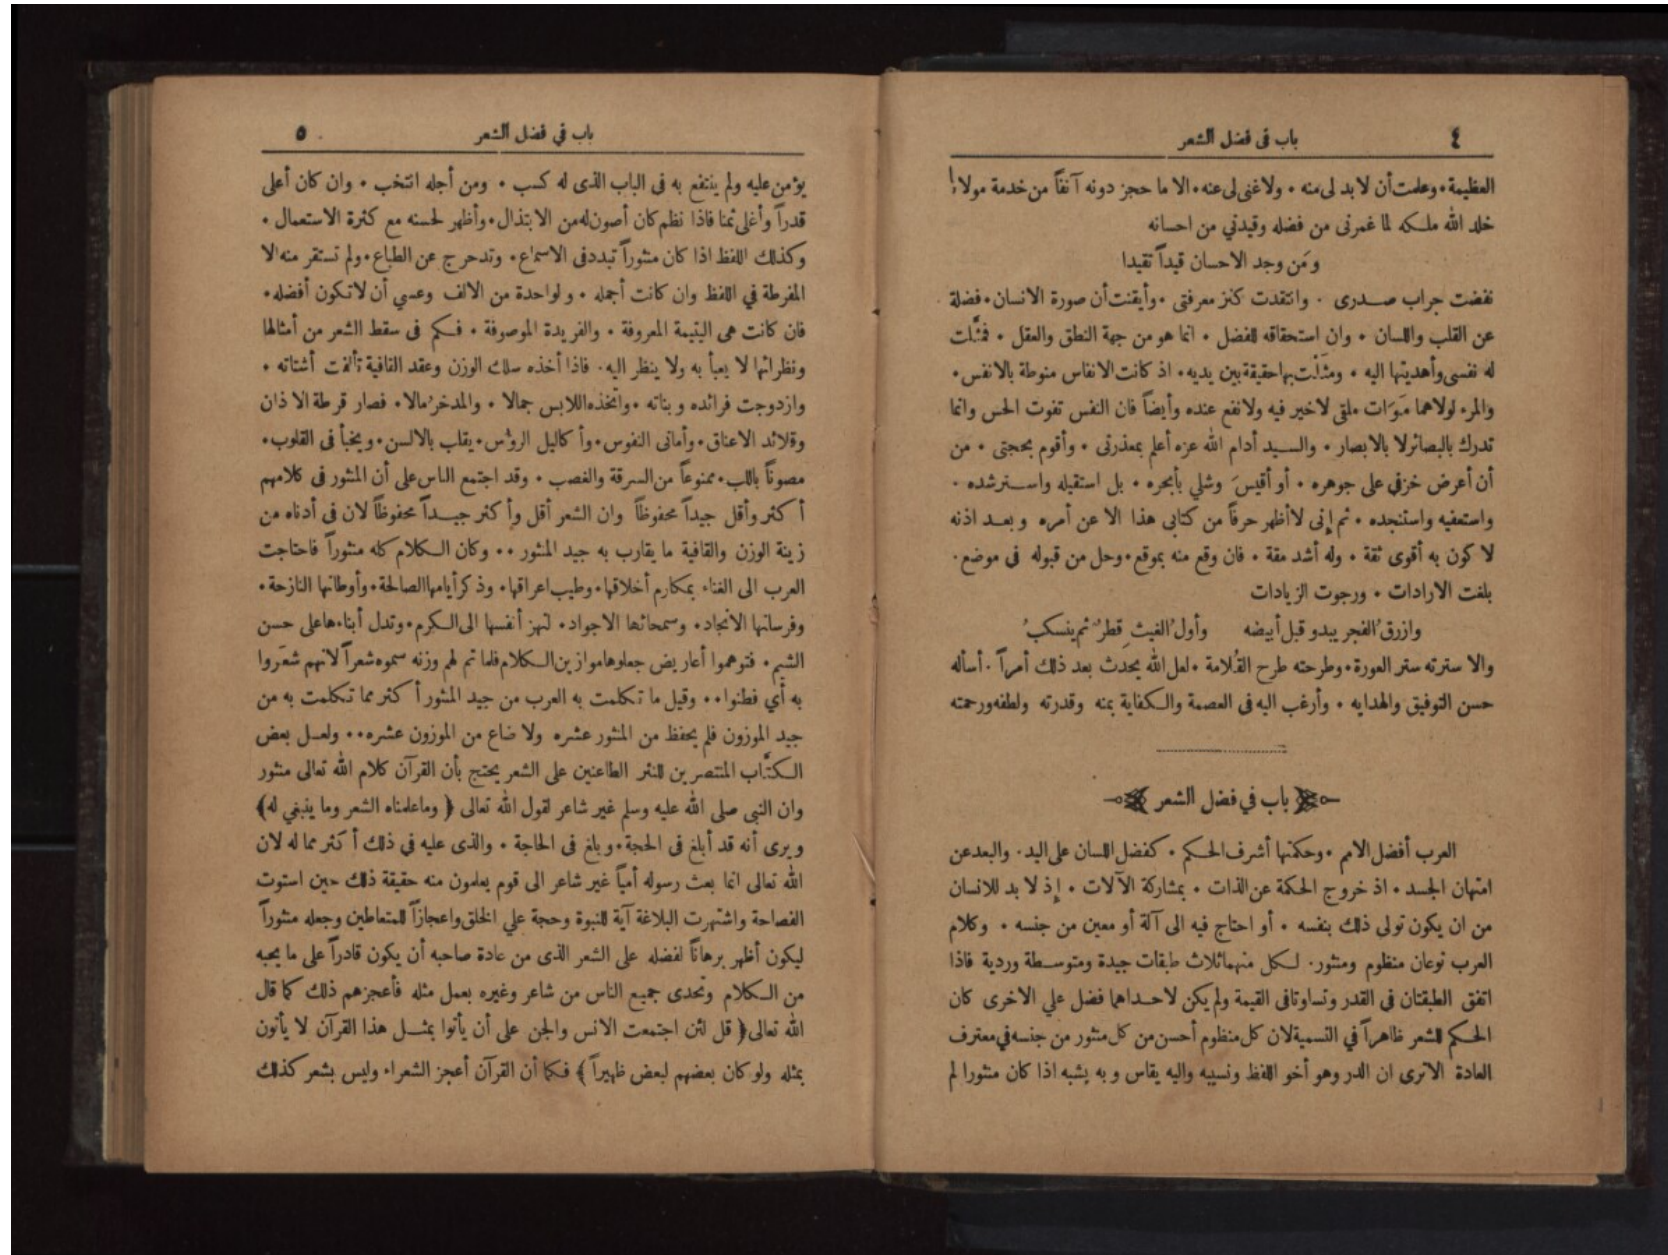 ٤
باب في فضل الشعر
العظيمة • وعلمت أن لا بد لى منه • ولاغنى لى عنه • الا ما حجز دونه آنفاً من خدمة مولانا
خلد الله ملكه لما غمرنى من فضله وقيدني من احسانه
ومَن وجد الاحسان قيداً تقيدا
نفضت جراب صدرى • وانتقدت كنز معرفتى • وأيقنت أن صورة الانسان • فضلة
عن القلب واللسان • وان استحقاقه للفضل • انما هو من جهة النطق والعقل • فمثَّلت
له نفسى وأهديتها اليه • ومثَلْت بها حقيقة بين يديه • اذ كانت الانفاس منوطة بالانفس •
والمرء لولاهما مَوَات ملقى لاخير فيه ولانفع عنده وأيضاً فان النفس تفوت الحس وانما
تدرك بالبصائر لا بالابصار • والسيد أدام الله عزه أعلم بمعذرتى • وأقوم بحجتى • من
أن أعرض خزفي على جوهره • أو أقيسَ وشلي بأبحره • بل استقيله واسترشده •
واستعفيه واستنجده • ثم إنى لاأظهر حرفاً من كتابى هذا الا عن أمره وبعد اذنه
لا كون به أقوى ثقة • وله أشد مقة • فان وقع منه بموقع • وحل من قبوله في موضع •
بلغت الارادات • ورجوت الزيادات
وازرقُ الفجر يبدو قبل أبيضه وأول الغيثِ قطرٌ ثم ينسكبُ
والا سترته ستر العورة • وطرحته طرح القُلامة • لعل الله يحدث بعد ذلك أمراً • أسأله
حسن التوفيق والهدايه • وأرغب اليه فى العصمة والكفاية بمنه وقدرته ولطفه ورحمته
باب في فضل الشعر
العرب أفضل الامم • وحكمتها أشرف الحكم • كفضل اللسان على اليد • والبعد عن
امتهان الجسد • اذ خروج الحكمة عن الذات • بمشاركة الآلات • إذ لا بد للانسان
من ان يكون تولى ذلك بنفسه • أو احتاج فيه الى آلة أو معين من جنسه • وكلام
العرب نوعان منظوم ومنثور • لكل منهما ثلاث طبقات جيدة ومتوسطة وردية فاذا
اتفق الطبقتان في القدر وتساوتا فى القيمة ولم يكن لاحداهما فضل علي الاخرى كان
الحكم للشعر ظاهراً في التسمية لان كل منظوم أحسن من كل منثور من جنسه في معترف
العادة الا ترى ان الدر وهو أخو اللفظ ونسيبه واليه يقاس وبه يشبه اذا كان منثورا لم
باب في فضل الشعر
٥
يؤمن عليه ولم ينتفع به فى الباب الذى له كسب • ومن أجله انتخب • وان كان أعلى
قدراً وأغلى ثمنا فاذا نظم كان أصون له من الابتذال • وأظهر لحسنه مع كثرة الاستعمال •
وكذلك اللفظ اذا كان منثوراً تبدد فى الاسماع • وتدحرج عن الطباع • ولم تستقر منه الا
المفرطة في اللفظ وان كانت أجمله • ولواحدة من الالف وعسي أن لاتكون أفضله •
فان كانت هى اليتيمة المعروفة • والفريدة الموصوفة • فكم فى سقط الشعر من أمثالها
ونظرائها لا يعبأ به ولا ينظر اليه • فاذا أخذه سلك الوزن وعقد القافية تألفت أشتاته •
وازدوجت فرائده وبناته • واتخذه اللابس جمالا • والمدخر مالا • فصار قرطة الاذان
وقلائد الاعناق • وأمانى النفوس • وأكاليل الرؤس • يقلب بالالسن • ويخبأ فى القلوب •
مصوناً باللب • ممنوعاً من السرقة والغصب • وقد اجتمع الناس على أن المنثور فى كلامهم
أكثر وأقل جيداً محفوظاً وان الشعر أقل وأكثر جيداً محفوظاً لان فى أدناه من
زينة الوزن والقافية ما يقارب به جيد المنثور • • وكان الكلام كله منثوراً فاحتاجت
العرب الى الغناء بمكارم أخلاقها • وطيب اعراقها • وذكر أيامها الصالحة • وأوطانها النازحة •
وفرسانها الانجاد • وسمحائها الاجواد • لتهز أنفسها الى الكرم • وتدل أبناءها على حسن
الشيم • فتوهموا أعاريض جعلوها موازين الكلام فلما تم لهم وزنه سموه شعراً لانهم شعَروا
به أي فطنوا • • وقيل ما تكلمت به العرب من جيد المنثور أكثر مما تكلمت به من
جيد الموزون فلم يحفظ من المنثور عشره ولا ضاع من الموزون عشره • • ولعل بعض
الكتَّاب المنتصرين للنثر الطاعنين على الشعر يحتج بأن القرآن كلام الله تعالى منثور
وان النبى صلى الله عليه وسلم غير شاعر لقول الله تعالى ﴿ وماعلمناه الشعر وما ينبغي له﴾
ويرى أنه قد أبلغ فى الحجة • وبلغ فى الحاجة • والذى عليه في ذلك أكثر مما له لان
الله تعالى انما بعث رسوله أمياً غير شاعر الى قوم يعلمون منه حقيقة ذلك حين استوت
الفصاحة واشتهرت البلاغة آية للنبوة وحجة علي الخلق واعجازاً للمتعاطين وجعله منثوراً
ليكون أظهر برهاناً لفضله على الشعر الذى من عادة صاحبه أن يكون قادراً على ما يحبه
من الكلام وتحدى جميع الناس من شاعر وغيره بعمل مثله فأعجزهم ذلك كما قال
الله تعالى﴿ قل لئن اجتمعت الانس والجن على أن يأتوا بمثل هذا القرآن لا يأتون
بمثله ولو كان بعضهم لبعض ظهيراً ﴾ فكما أن القرآن أعجز الشعراء وليس بشعر كذلك